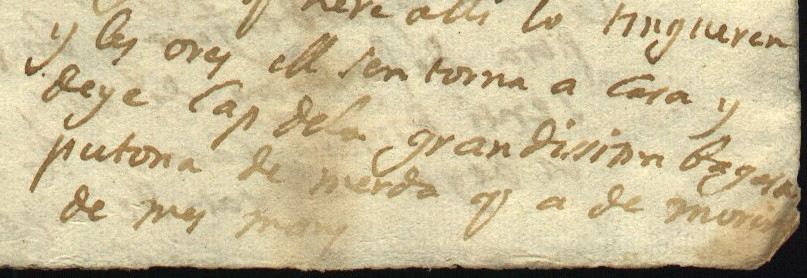 q here alli lo tingueren
y les ores ell sen torna a Casa y
deye Cap dela grandissima bagasa
putona de merda q a de morir
de mes mans